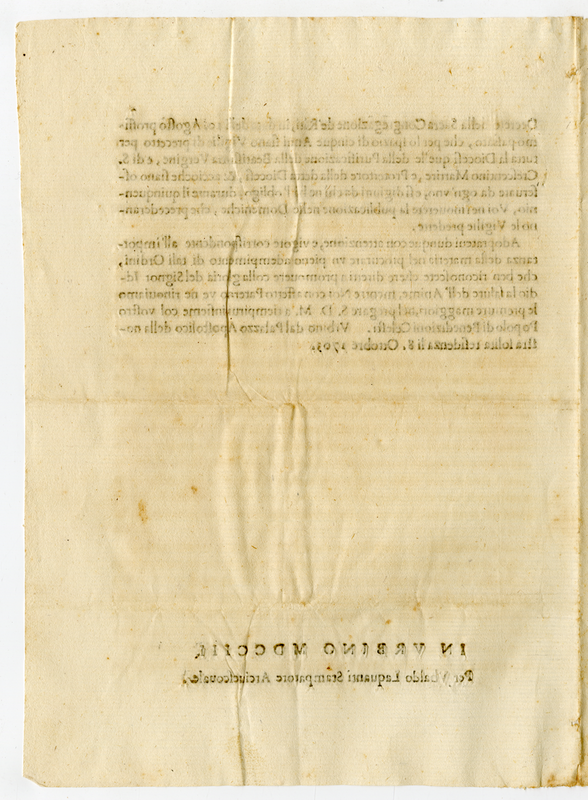 Decreto della Sacra Congregazione de Riti, li Agosto prossi-
mo passato, che per lo spazio di cinque Anni siano Vigilie di precetto per
tutta la Diocesi quelle della Purificazione della Beatissima Vergine, e di S.
Crescentino Martire, e Protettore della detta Diocesi, & acciocche siano os-
seruate da ogn'vno, essi digiuni da ciò nell'obligo, durante il quinquen-
nio, Voi ne mouerete la publicazione nelle Domeniche, che precederan-
no le Vigilie predette.
Adopratevi dunque con attenzione, e vigore corrispondente all'impor-
tanza della materia nel procurare vn pieno adempimento di tali Ordini,
che ben riconoscete esser diretti a promouere colla gloria del Signor Id-
dio la salute dell'Anime, mentre Noi con affetto Paterno ve ne rinouiamo
le premure maggiori, al pregare S. D. M. a riempirui insieme col vostro
Popolo di Benedizioni Celesti. Vrbino dal Palazzo Apostolico della no-
stra solita residenza li 8. Ottobre 1703.
IN VRBINO MDCCIII.
Per Vbaldo Laquanti Stampatore Arciuescouale.